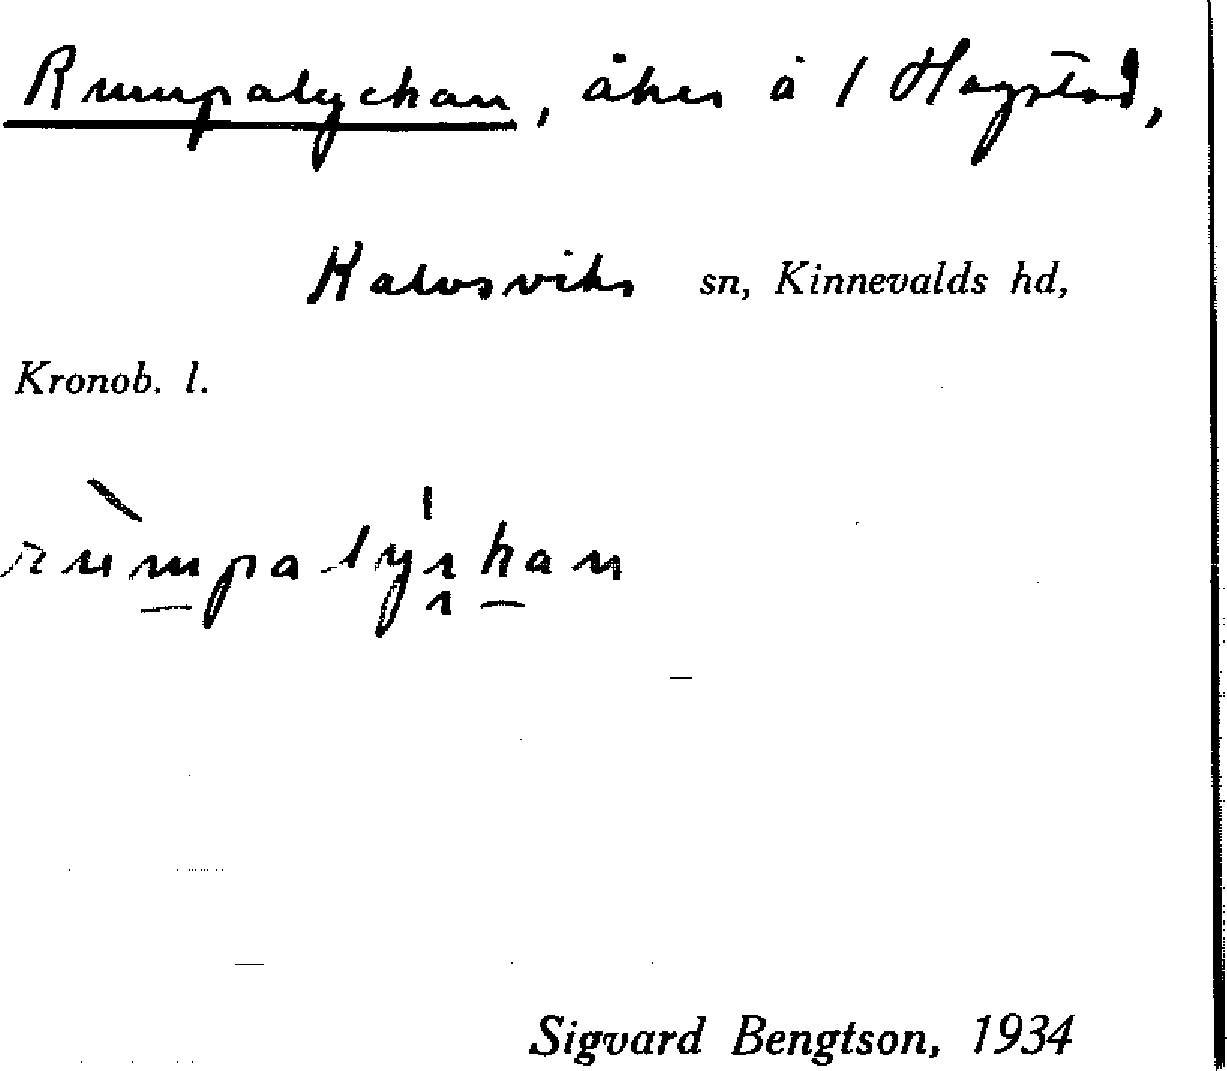 Rumpalyckan, åker å 1 Hagstad,
Kalvsviks sn, Kinnevalds hd,
Kronob. l.
rumpalykan
Sigvard Bengtson, 1934